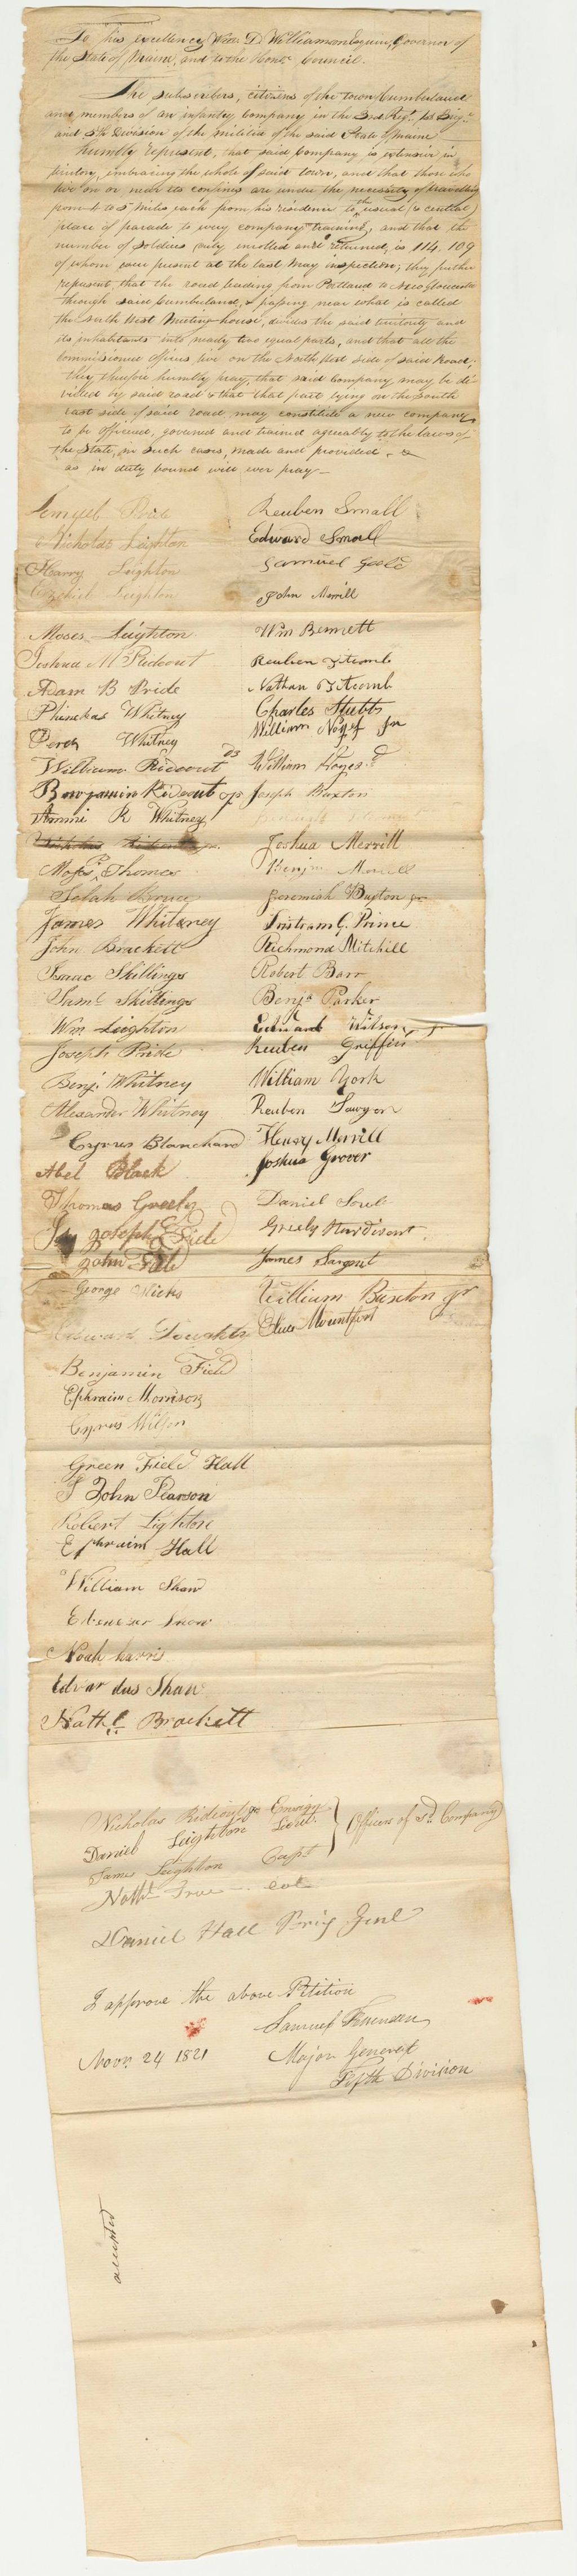 To His excellency Wm D. Williamson Esquire, Governor of
the State of Maine, and to the Honle Council.
The subscribers, citizens of the town Cumberland
and members of an infantry company in the 3rd Regt 1st Brigde
and 5th Division of the militia of the said State of Maine
humbly represent, that said Company is extensive in
embracing the whole of said town, and that those who
live on or near its confines are under the necessity of travelling
from to 5 miles each from his residence to the usual (& central)
place of parade to every company training; and that the
number of soldiers duly enrolled and returned, is 114, 109
of whom were present at the last May inspection; they further
represent, that the road leading from Portland to New Gloucester
through said Cumberland, & passing near what is called
the North West Meeting house, divides the said territory and
its inhabitants into nearly two equal parts, and that all the
commissioned officers live on the North West side of said Road;
they therefore humbly pray, that said Company may be di-
vided by said road & that that part lying on the South
east side of said road, may constitute a new company
to be officered, governed and trained agreeably to the laws of
the State, in such cases, made and provided - &
as in duty bound will ever pray -
Lemuel Pride
Nicholas Leighton
Harry Leighton
Ezekiel Leighton
Moses Leighton
Joshua M Rideout
Adam B Pride
Phinehas Whitney
Perez Whitney
William Rideout 3d
Benjamin Rideout Jr
Ammi R Whitney
Moses P Thomes
Selah
James Whiteney
John Brackett
Isaac Skillings
Saml Skillings
Wm Leighton
Joseph Pride
Benj. Whitney
Alexander Whitney
Cyrus Blanchard
Abel Black
Thomas Greely
Joseph Field
John Field
George Hicks
Edward
Benjamin Field
Ephraim Morrison
Cyrus Wilson
Green Field Hall
John Pearson
Robert Lighton
Ephraim Hall
William Shaw
Ebenezer Snow
Noah harris
Edvardus Shaw
Nathl Brackett
Reuben Small
Edward Small
Samuel
John Merrill
Wm Bennett
Reuben Titcomb
Nathan Titcomb
Charles Stubbs
William Noyes Jr
William Noyes 3d
Joseph Buxton
Joshua Merrill
Benjn Merrill
Jeremiah Buxton Jr
Tristram G. Prince
Richmond Mitchill
Robert Barr
Benja Parker
Edward Wilson Jr
Reuben Griffin
William York
Reuben Sawyer
Henry Merrill
Joshua Grover
Daniel Soule
Greely Sturdivant
James Sargent
William Buxton Jr
Mountfort
Nicholas Rideout Jr Ensign
Daniel Leighton Lieut.
James Leighton Capt
Officers of sd Company
Nathl True - Col
Daniel Hall Brig Genl
I approve the above Petition
Samuel
Novr. 24 1821 Major General
Fifth Division
accepted